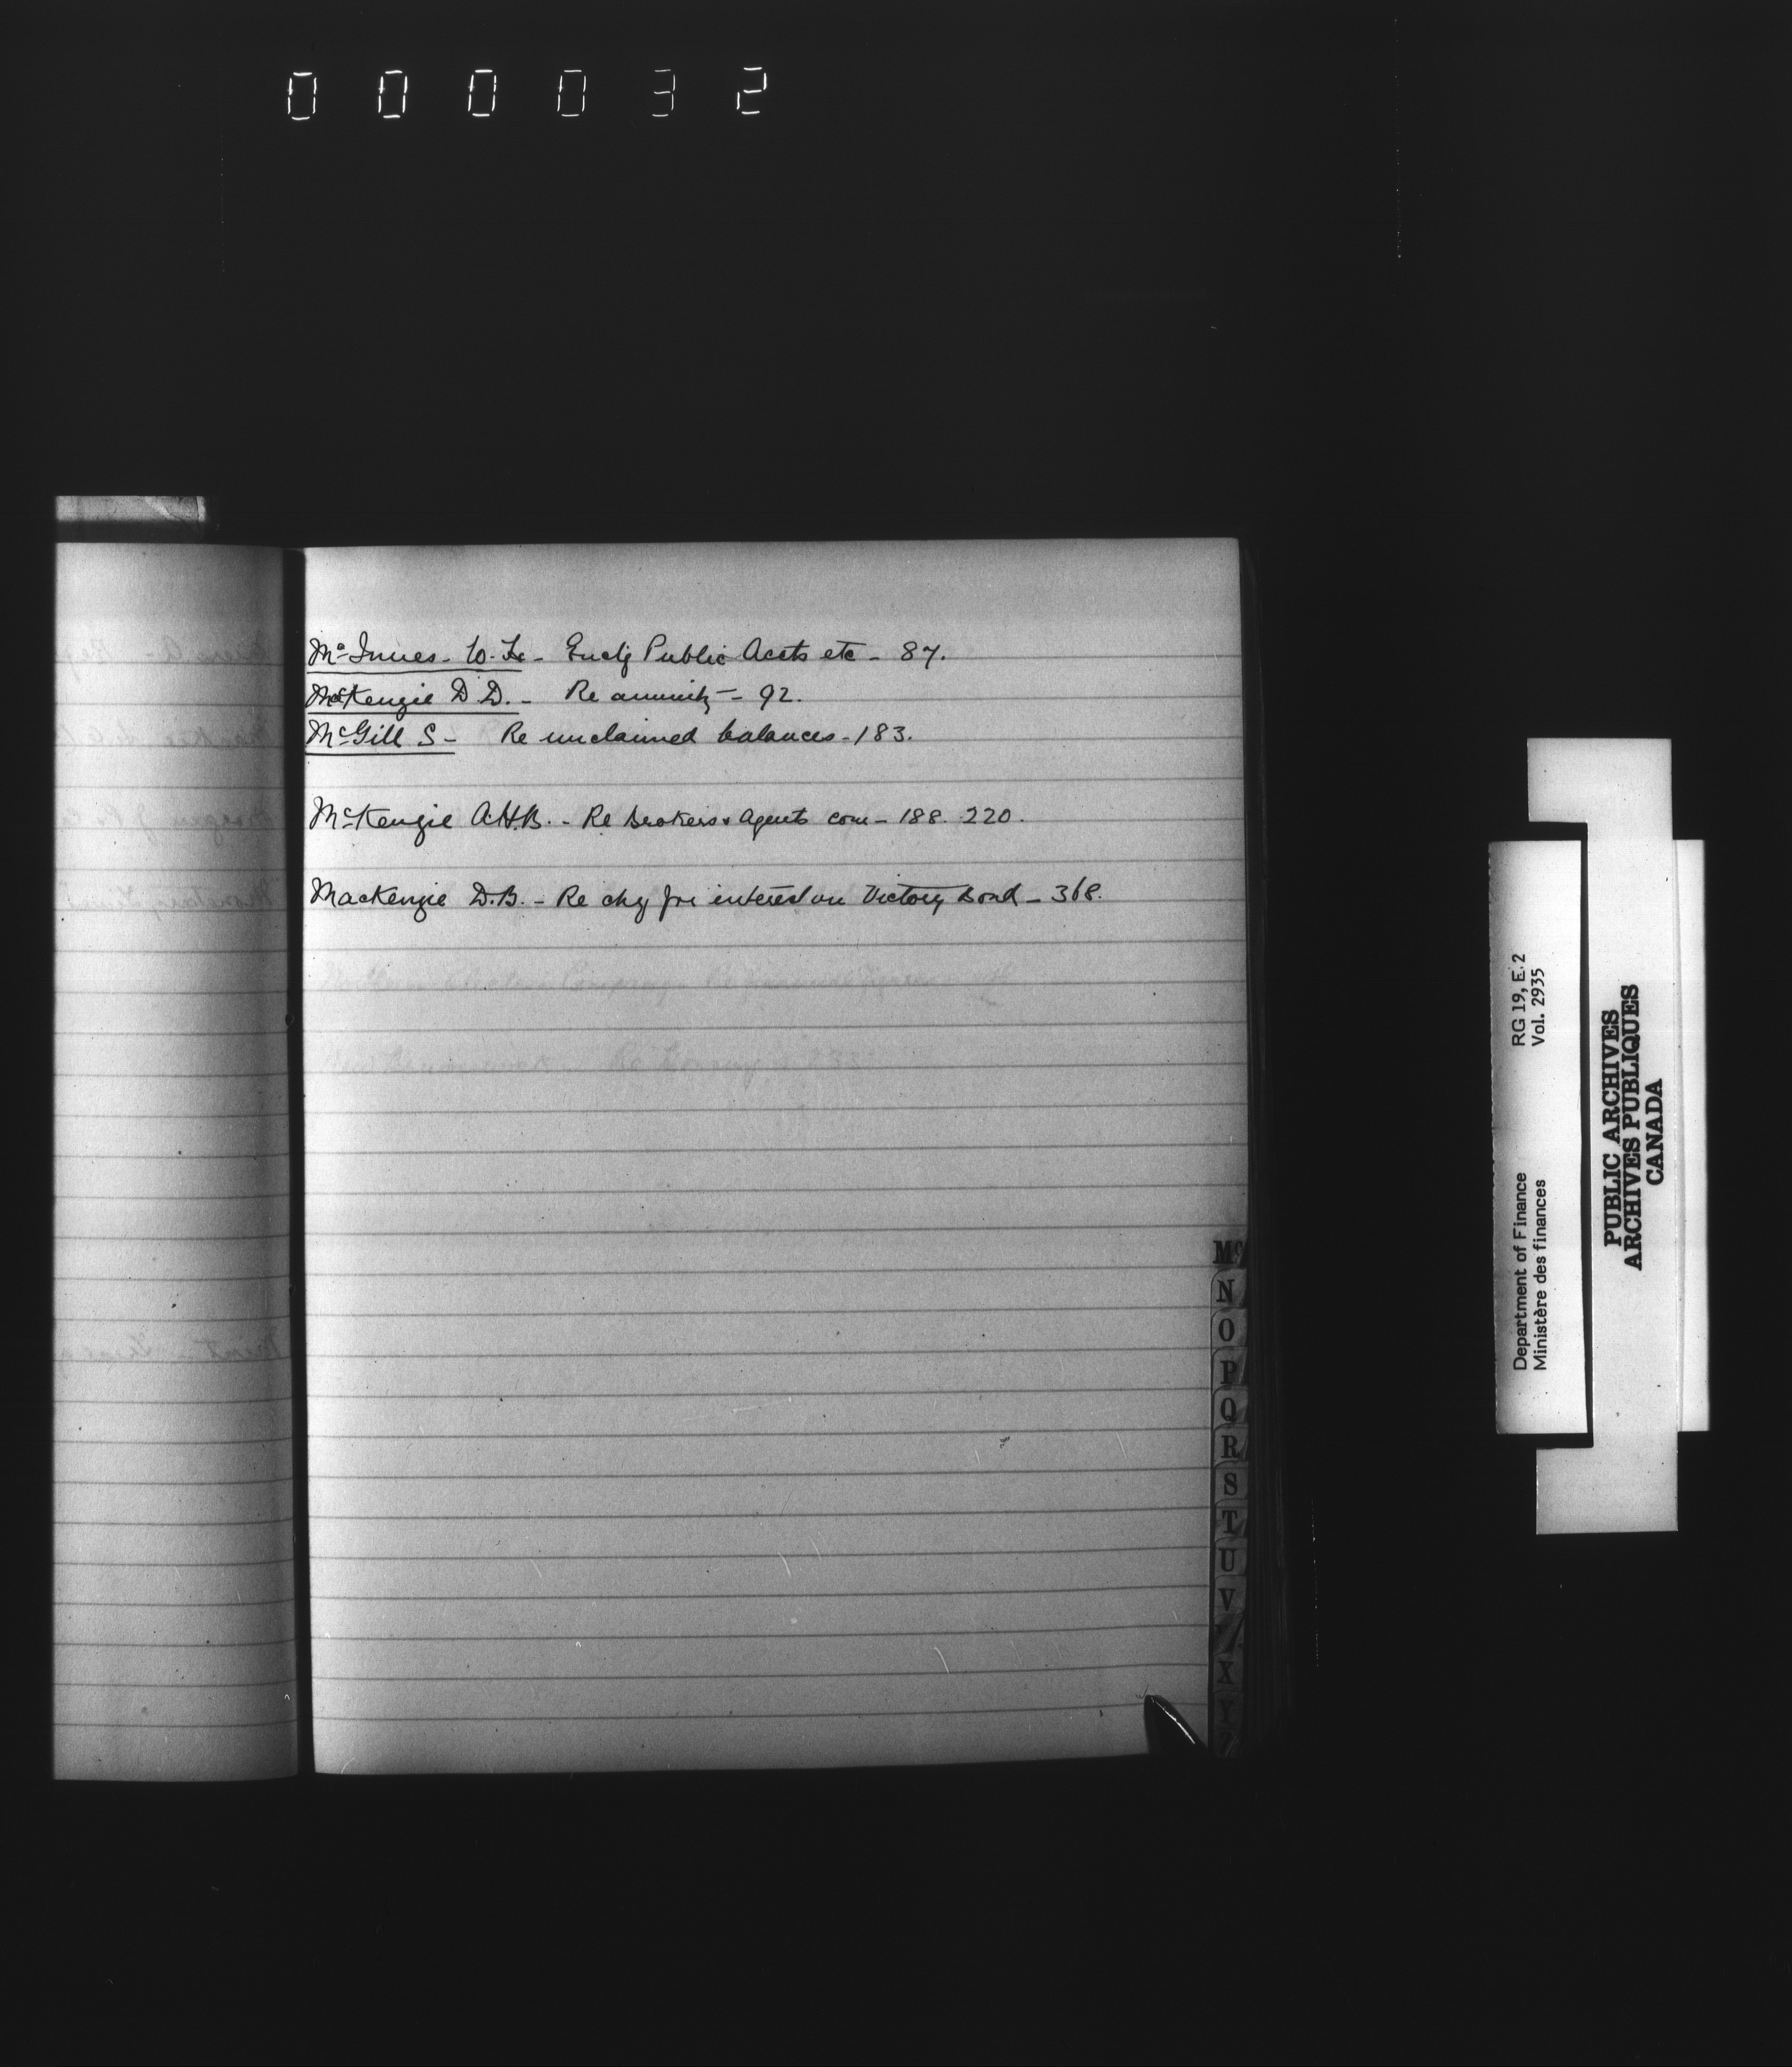 000032
McInnes - W. L. - Encl'g Public Accts etc - 87.
McKenzie D. D. - Re annuity - 92.
McGill S - Re unclaimed balances - 183.
McKenzie A.H.B. - Re Brokers & Agents com - 188. 220.
Mackenzie D.B. - Re chq for interest on Victory Bond - 368.
Mc
N
O
P
Q
R
S
T
U
V
X
Y
Z
Department of Finance RG 19, E.2
Ministère des finances Vol. 2935
PUBLIC ARCHIVES
ARCHIVES PUBLIQUES
CANADA